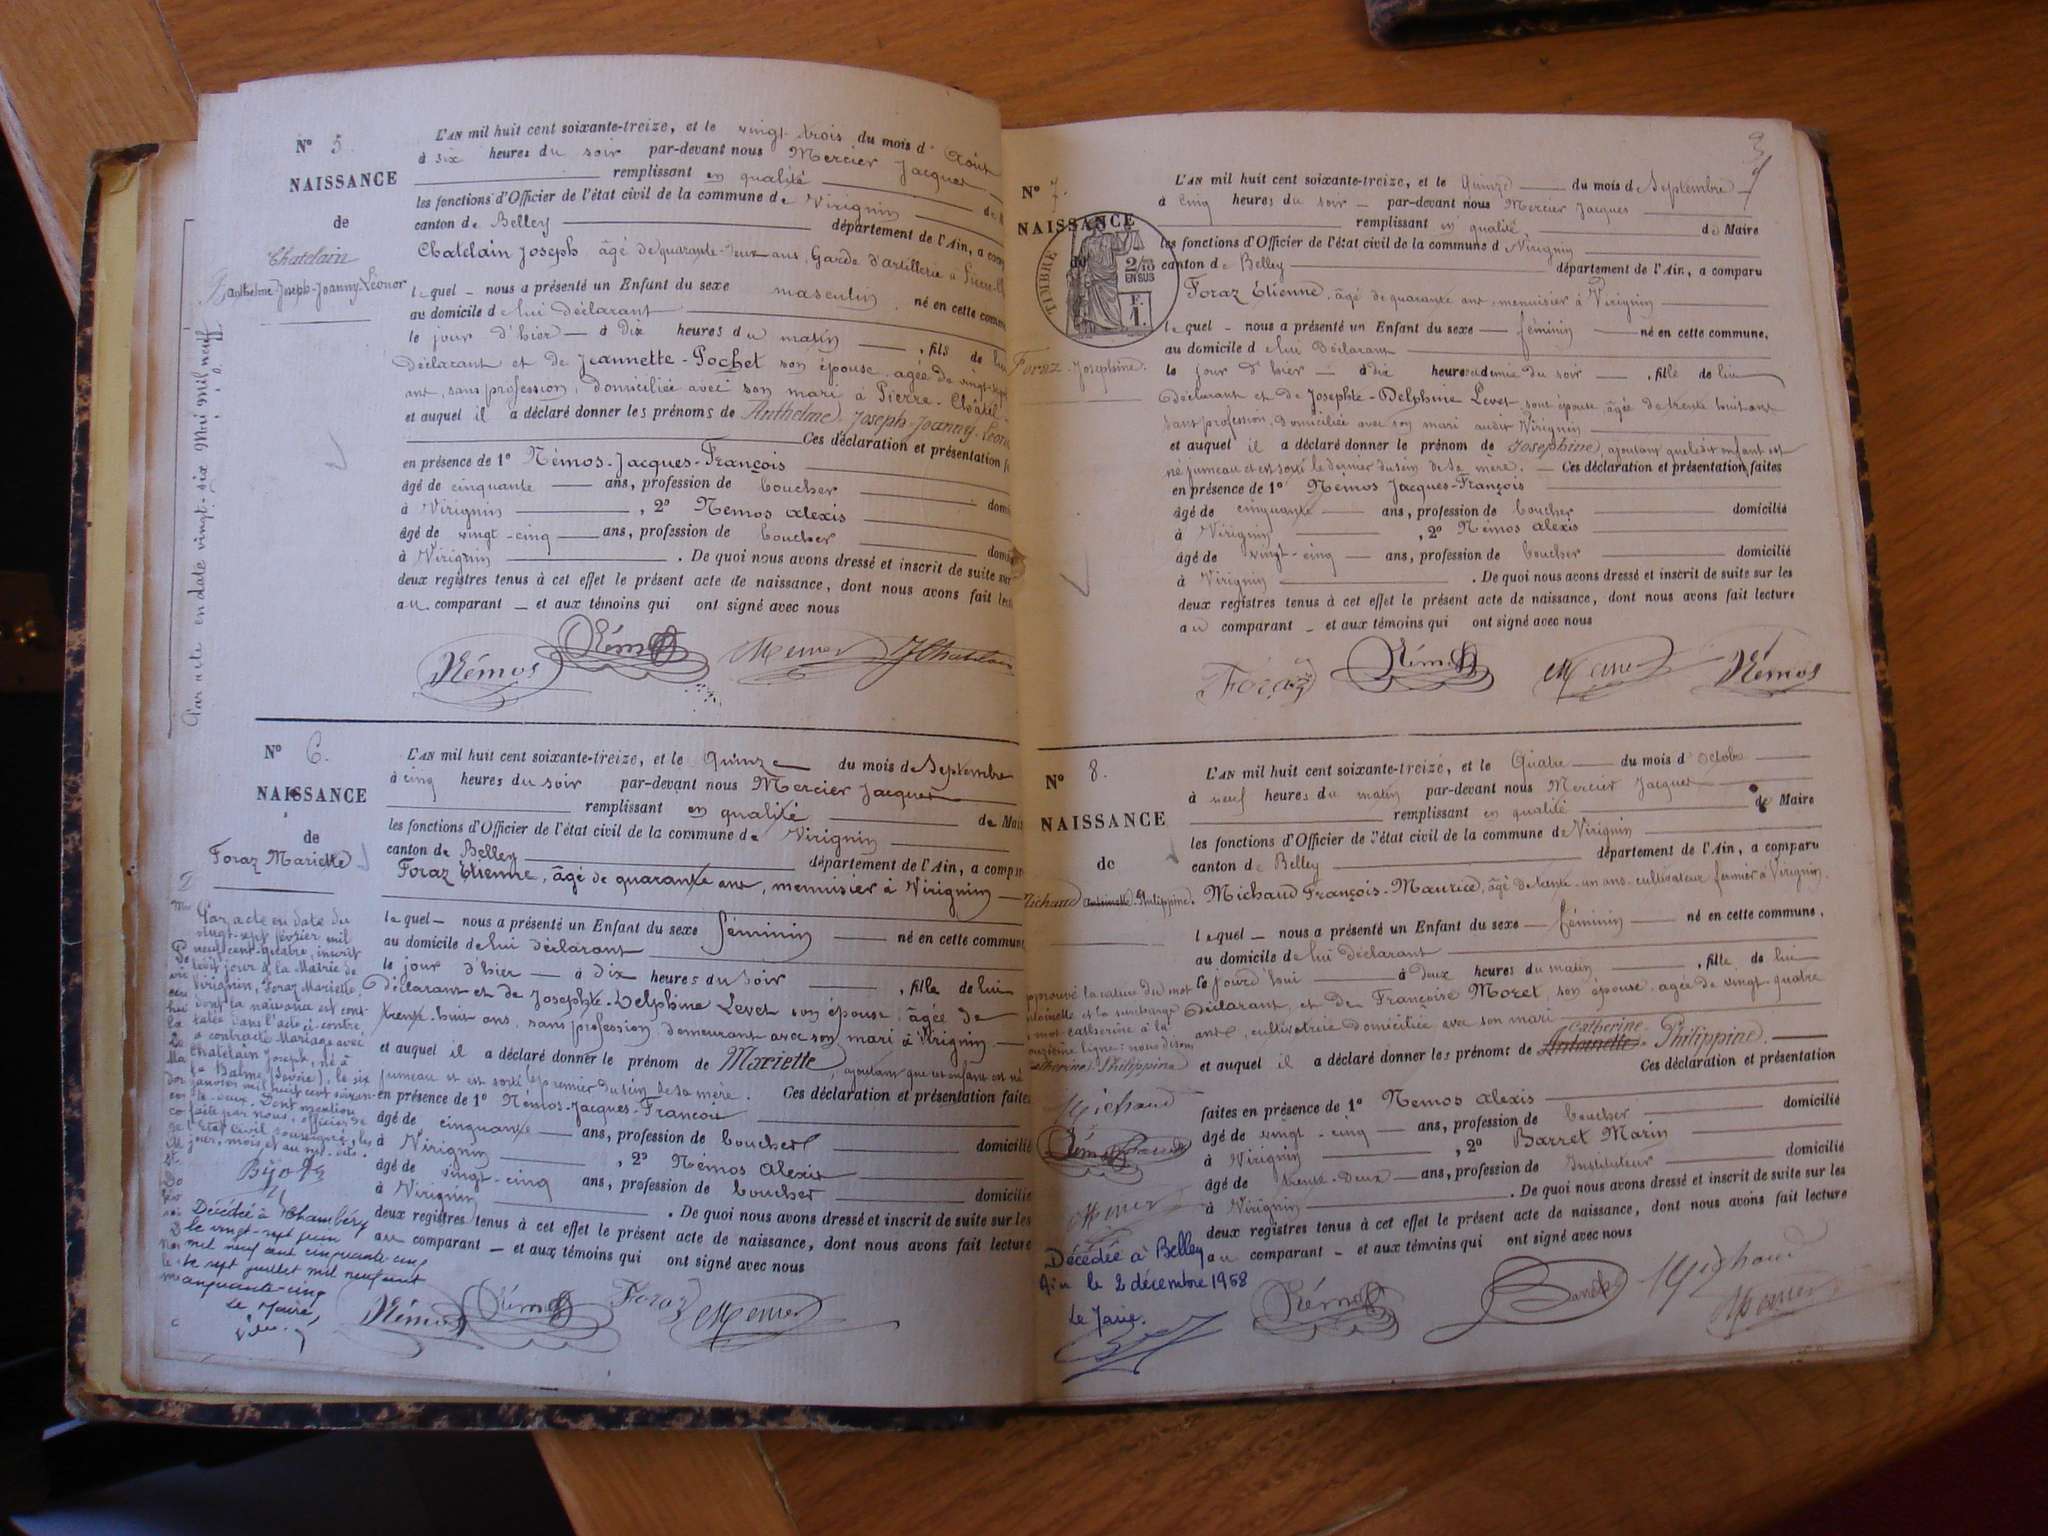 N° 5.
NAISSANCE
de
Chatelain
Anthelme-Joseph-Joanny-Léonor
L'AN mil huit cent soixante-treize, et le vingt-trois du mois d'Août
à six heures du soir par-devant nous Mercier Jacques
remplissant en qualité de
les fonctions d'Officier de l'état civil de la commune de Virignin
canton de Belley département de l'Ain, a
Chatelain Joseph âgé de quarante-deux ans, Garde d'artillerie à
lequel nous a présenté un Enfant du sexe masculin né en cette
au domicile de lui déclarant
le jour d'hier à dix heures du matin, fils de lui
Déclarant et de Jeannette-Pochet son épouse, agée de
ans, sans profession, domiciliée avec son mari à Pierre-Châtel
et auquel il a déclaré donner les prénoms de Anthelme, Joseph-Joanny-
Ces déclaration et présentation
en présence de 1° Némos-Jacques-François
âgé de cinquante ans, profession de boucher
à Virignin, 2° Nemos alexis
âgé de vingt-cinq ans, profession de boucher
à Virignin. De quoi nous avons dressé et inscrit de suite sur
deux registres tenus à cet effet le présent acte de naissance, dont nous avons fait
au comparant et aux témoins qui ont signé avec nous
Némos Némos Mercier JChatelain
Par acte en date vingt-six Mai mil neuf
N° 6.
NAISSANCE
de
Foraz Mariette
L'AN mil huit cent soixante-treize, et le Quinze du mois de Septembre
à cinq heures du soir par-devant nous Mercier Jacques
remplissant en qualité de
les fonctions d'Officier de l'état civil de la commune de Virignin
canton de Belley département de l'Ain, a
Foraz Étienne, âgé de quarante ans, menuisier à Virignin
lequel nous a présenté un Enfant du sexe féminin né en cette commune
au domicile de lui déclarant
le jour d'hier à dix heures du soir, fille de lui
déclarant et de Josephte-Delphine Levet son épouse, âgée de
trente-huit ans, sans profession, demeurant avec son mari à Virignin
et auquel il a déclaré donner le prénom de Mariette, ajoutant que cet enfant est né
jumeau et est sorti le premier du sein de sa mère. Ces déclaration et présentation faites
en présence de 1° Némos-Jacques-François
âgé de cinquante ans, profession de boucher domicilié
à Virignin, 2° Némos Alexis
âgé de vingt-cinq ans, profession de boucher domicilié
à Virignin. De quoi nous avons dressé et inscrit de suite sur les
deux registres tenus à cet effet le présent acte de naissance, dont nous avons fait lecture
au comparant et aux témoins qui ont signé avec nous
Némos Némos Foraz Mercier
Par acte en date du
vingt-sept février mil
neuf cent-quatre, inscrit
ledit jour à la Mairie de
Virignin, Foraz Mariette,
dont la naissance est cons-
tatée dans l'acte ci-contre,
a contracté Mariage avec
Chatelain Joseph, né à
la Balme (Savoie), le six
janvier mil huit cent soixan-
te-deux. Dont mention
faite par nous, officier de
l'Etat Civil soussigné, les
jour, mois et an
Décédée à Chambéry
le vingt-sept juin
mil neuf cent cinquante-cinq
Le sept juillet mil neuf cent
cinquante-cinq
Le Maire,
N° 7.
NAISSANCE
de
TIMBRE
2/10
EN SUS
F.
1.
Foraz Josephine.
L'AN mil huit cent soixante-treize, et le Quinze du mois de Septembre
à cinq heures du soir par-devant nous Mercier Jacques
remplissant en qualité de Maire
les fonctions d'Officier de l'état civil de la commune d Virignin
canton de Belley département de l'Ain, a comparu
Foraz Étienne, âgé de quarante ans, menuisier à Virignin
lequel nous a présenté un Enfant du sexe féminin né en cette commune,
au domicile d lui Déclarant
le jour d'hier à dix heures et demie du soir, fille de lui
Déclarant et de Josephte-Delphine Levet son épouse âgée de trente huit ans
sans profession, domiciliée avec son mari audit Virignin
et auquel il a déclaré donner le prénom de Josephine, ajoutant que ledit enfant est
né jumeau et est sorti le dernier du sein de sa mère. Ces déclaration et présentation faites
en présence de 1° Nemos Jacques-François
âgé de cinquante ans, profession de boucher domicilié
à Virignin, 2° Némos alexis
âgé de vingt-cinq ans, profession de boucher domicilié
à Virignin. De quoi nous avons dressé et inscrit de suite sur les
deux registres tenus à cet effet le présent acte de naissance, dont nous avons fait lecture
au comparant et aux témoins qui ont signé avec nous
Foraz Némos Mercier Némos
N° 8.
NAISSANCE
de
Michaud Antoinette-Philippine.
L'AN mil huit cent soixante-treize, et le Quatre du mois d'octobre
à neuf heures du matin par-devant nous Mercier Jacques
remplissant en qualité de Maire
les fonctions d'Officier de l'état civil de la commune de Virignin
canton de Belley département de l'Ain, a comparu
Michaud François-Maurice, âgé de trente-un ans, cultivateur fermier à Virignin.
lequel nous a présenté un Enfant du sexe féminin né en cette commune,
au domicile de lui Déclarant
le jourd'hui à deux heures du matin, fille de lui
Déclarant, et de Françoise Moret, son épouse, agée de vingt-quatre
ans, cultivatrice domiciliée avec son mari
Catherine
et auquel il a déclaré donner les prénoms de Antoinette-Philippine.
Ces déclaration et présentation
faites en présence de 1° Nemos Alexis
âgé de vingt-cinq ans, profession de boucher domicilié
à Virignin, 2° Barret Marin
âgé de trente-deux ans, profession de Instituteur domicilié
à Virignin. De quoi nous avons dressé et inscrit de suite sur les
deux registres tenus à cet effet le présent acte de naissance, dont nous avons fait lecture
au comparant et aux témoins qui ont signé avec nous
Némos Barret Michaud Mercier
la rature du mot
et la surcharge
mot Catherine à la
onzième ligne: nous disons
Catherine-Philippine
Michaud
Némos Barret
Mercier
Décédée à Belley
Ain le 2 décembre 1958
Le Maire.